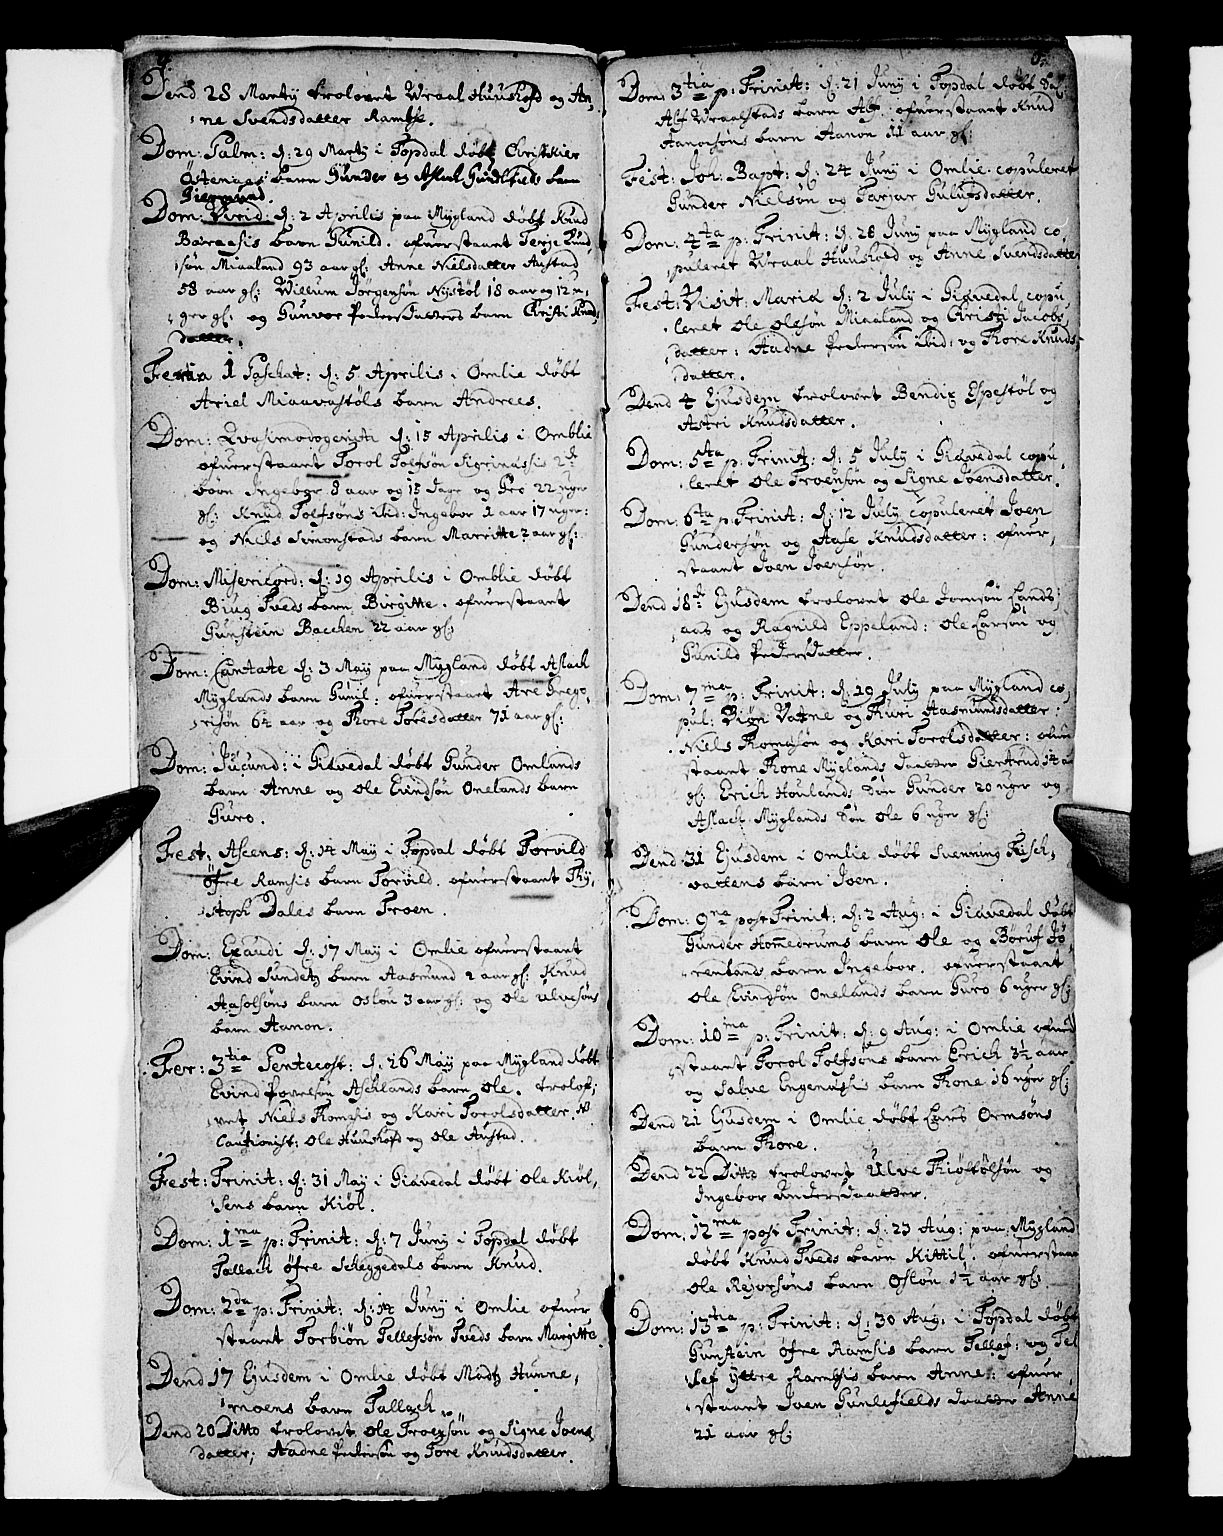 4.
Dend 28 Martij trolovet Wraal Huushofd og An,
ne Svendsdatter Ramse.
Dom: Palm: d: 29 Martij i Topdal døbt Christster
Østenaas barn Gunder og Aslach Gundlefields barn
Giermund.
Dom: Virid: d: 2 Aprilis paa Mygland døbt Knud
barn Gunild. ofverstaaet Terje Knud
søn Miaaland 93 aar gl: Anne Nielsdatter Austad
58 aar gl: Willum Jørgensøn Nystøl 18 aar og 12 u,
ger gl: og Gunvor Pedersdatters barn Christi Knuds
datter.
Feria 1 Paschat: d: 5 Aprilis i Omlie døbt
Ariel Miaavastøls barn Andrees.
Dom: Qvasimodogeniti d: 15 Aprilis i Omblie
ofverstaaet Torol Tolfsøn Sigrinassis 2de
børn Ingebor 8 aar og 15 dage og Gro 22 uger
gl: Knud Tolfsøns ibid: Ingebor 1 aar 17 uger:
og Niels Simonstads barn Marritte 2 aar gl:
Dom: Misericord: d: 19 Aprilis i Omblie døbt
Biug Tveds barn Birgitte. ofverstaaet
Gunstein Bacchen 22 aar gl:
Dom: Cantate d: 3 Maij paa Mygland døbt Aslach
Myglands barn Gunil: ofverstaaet Are Grego,
risøn 6½ aar og Thore Toresdatter 71 aar gl:
Dom: Jucund: i Giævedal døbt Gunder Omlands
barn Anne og Ole Evindsøn Onelands barn
Guro.
Fest: Ascens: d: 14 Maij i Topdal døbt Torvild
Øfre Ramsis barn Torvild. ofverstaaet Chri,
stoph Dales barn Troen.
Dom: Exaudi d: 17 Maij i Omlie ofverstaaet
Evind Sundets barn Aasmund 2 aar gl: Knud
Aasolsøns barn Osløu 3 aar gl: og Ole Ulvesøns
barn Aanon.
Fer: 3tia Pentecost: d: 26 Maij paa Mygland døbt
Evind Povelsøn Aschlands barn Ole. trolof,
vet Niels Thomæsis og Kari Torolsdatter, N
Cautionist: Ole Huushofd og Ole Austad.
Fest: Trinit: d: 31 Maij i Giævedal døbt Ole Kiøl,
sens barn Kiøl.
Dom: 1ma p: Trinit: d: 7 Junij i Topdal døbt
Tallach Øfre Scheggedals barn Knud.
Dom: 2da p: Trinit: d: 14 Junij i Omlie ofver
staaet Torbiøn Tellefsøn Tveds barn Margitte.
Dend 17 Ejusdem i Omlie døbt Madtz Hunne,
moens barn Tallach.
Dend 20 Ditto trolovet Ole Troensøn og Signe Joens
datter; Aadne Pedersøn og Tore Knudsdatter.
5.
Dom: 3tia p: Trinit: d: 21 Junij i Topdal døbt Sal:
Alf Wraalstads barn Alf. ofverstaaet Knud
Aanonsøns barn Aanon 11 aar gl:
Fest: Joh: Bapt: d: 24 Junij i Omlie copuleret
Gunder Nielsøn og Tarjar Gulufsdatter.
Dom: 4ta p: Trinit: d: 28 Junij paa Mygland co,
puleret Wraal Huushofd og Anne Svendsdatter
Fest: Visit: Mariæ d: 2 July i Giævedal copu,
leret Ole Olesøn Miaaland og Christi Jacobs,
datter: Aadne Pedersøn ibid: og Thore Knuds,
datter.
Dend 4 Ejusdem trolovet Bendix Espestøl og
Astri Knudsdatter.
Dom: 5ta p: Trinit: d: 5 July i Giævedal copu,
leret Ole Troensøn og Signe Joensdatter.
Dom: 6ta p: Trinit: d: 12 July copuleret Joen
Gundersøn og Aase Knudsdatter: ofver,
staaet Joen Joensøn.
Dend 18de Ejusdem trolovet Ole Jornsøn Lands,
aas og Ragnild Eppeland: Ole Larsøn og
Gunild Pedersdatter.
Dom: 7ma p: Trinit: d: 19 July paa Mygland co,
pul: Biøn Vatne og Thuri Aasmundsdatter:
Niels Thomasøn og Kari Torolsdatter: ofver
staaet Thone Myglands datter Giertrud 14 aar
gl: Erich Houlands søn Gunder 20 uger og
Aslach Myglands søn Ole 6 uger gl:
Dend 31 Ejusdem i Omlie døbt Svenning Fisch,
vattens barn Joen.
Dom: 9na post Trinit: d: 2 Aug: i Giævedal døbt
Gunder Hommedrums barn Ole og Børuf Jø,
rentands barn Ingebor. ofverstaaet
Ole Evindsøn Onelands barn Guro 6 uger gl:
Dom: 10ma p: Trinit: d: 9 Aug: i Omlie ofver
staaet Torol Tolfsøns barn Erich 3½ aar
og Salve Engenessis barn Thone 16 uger gl:
Dend 21 Ejusdem i Omlie døbt Lars Ormsøns
barn Thone.
Dend 22 Ditto trolovet Ulve Thiøstølsøn og
Ingebor Andersdatter.
Dom, 12ma post Trinit: d: 23 Aug: paa Mygland
døbt Knud Tveds barn Kittil: ofverstaaet
Ole Rejersøns barn Osløu 1½ aar gl:
Dom: 13tia p: Trinit: d: 30 Aug: i Topdal døbt
Gunstein Øfre Ramsis barn Tellef: og Tel
lef Yttre Ramsis barn Anne: ofver,
staaet Joen Gunlefields datter Anne
21 aar gl: